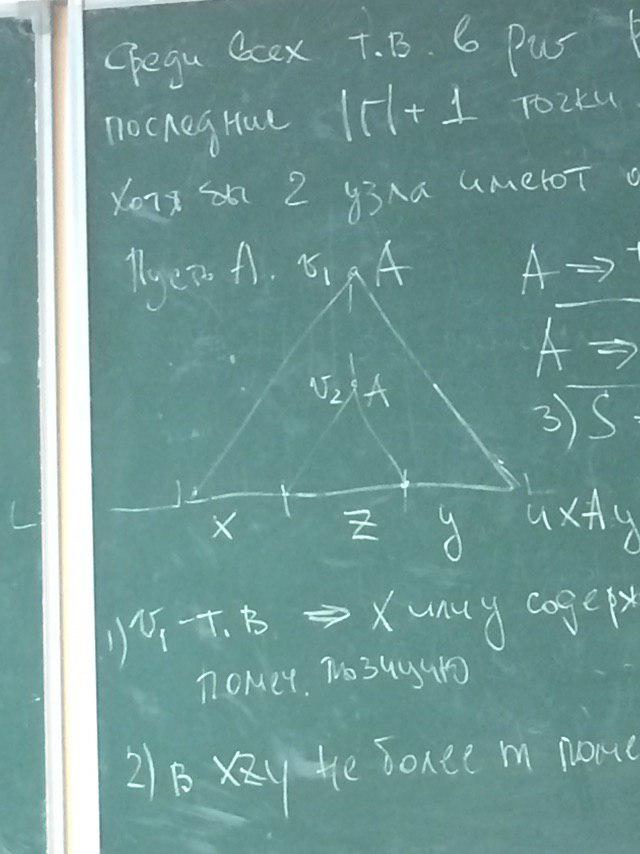 Среди всех т.в. в рит
последние |Г| + 1 точки
хотя бы 2 узла имеют о
Пусть A. v₁ A
A ⇒
v₂ A
A ⇒
3) S =
x z y uxAy
1) v₁ - т.в ⇒ x или y содерж
помеч. позицию
2) в xzy не более m поме